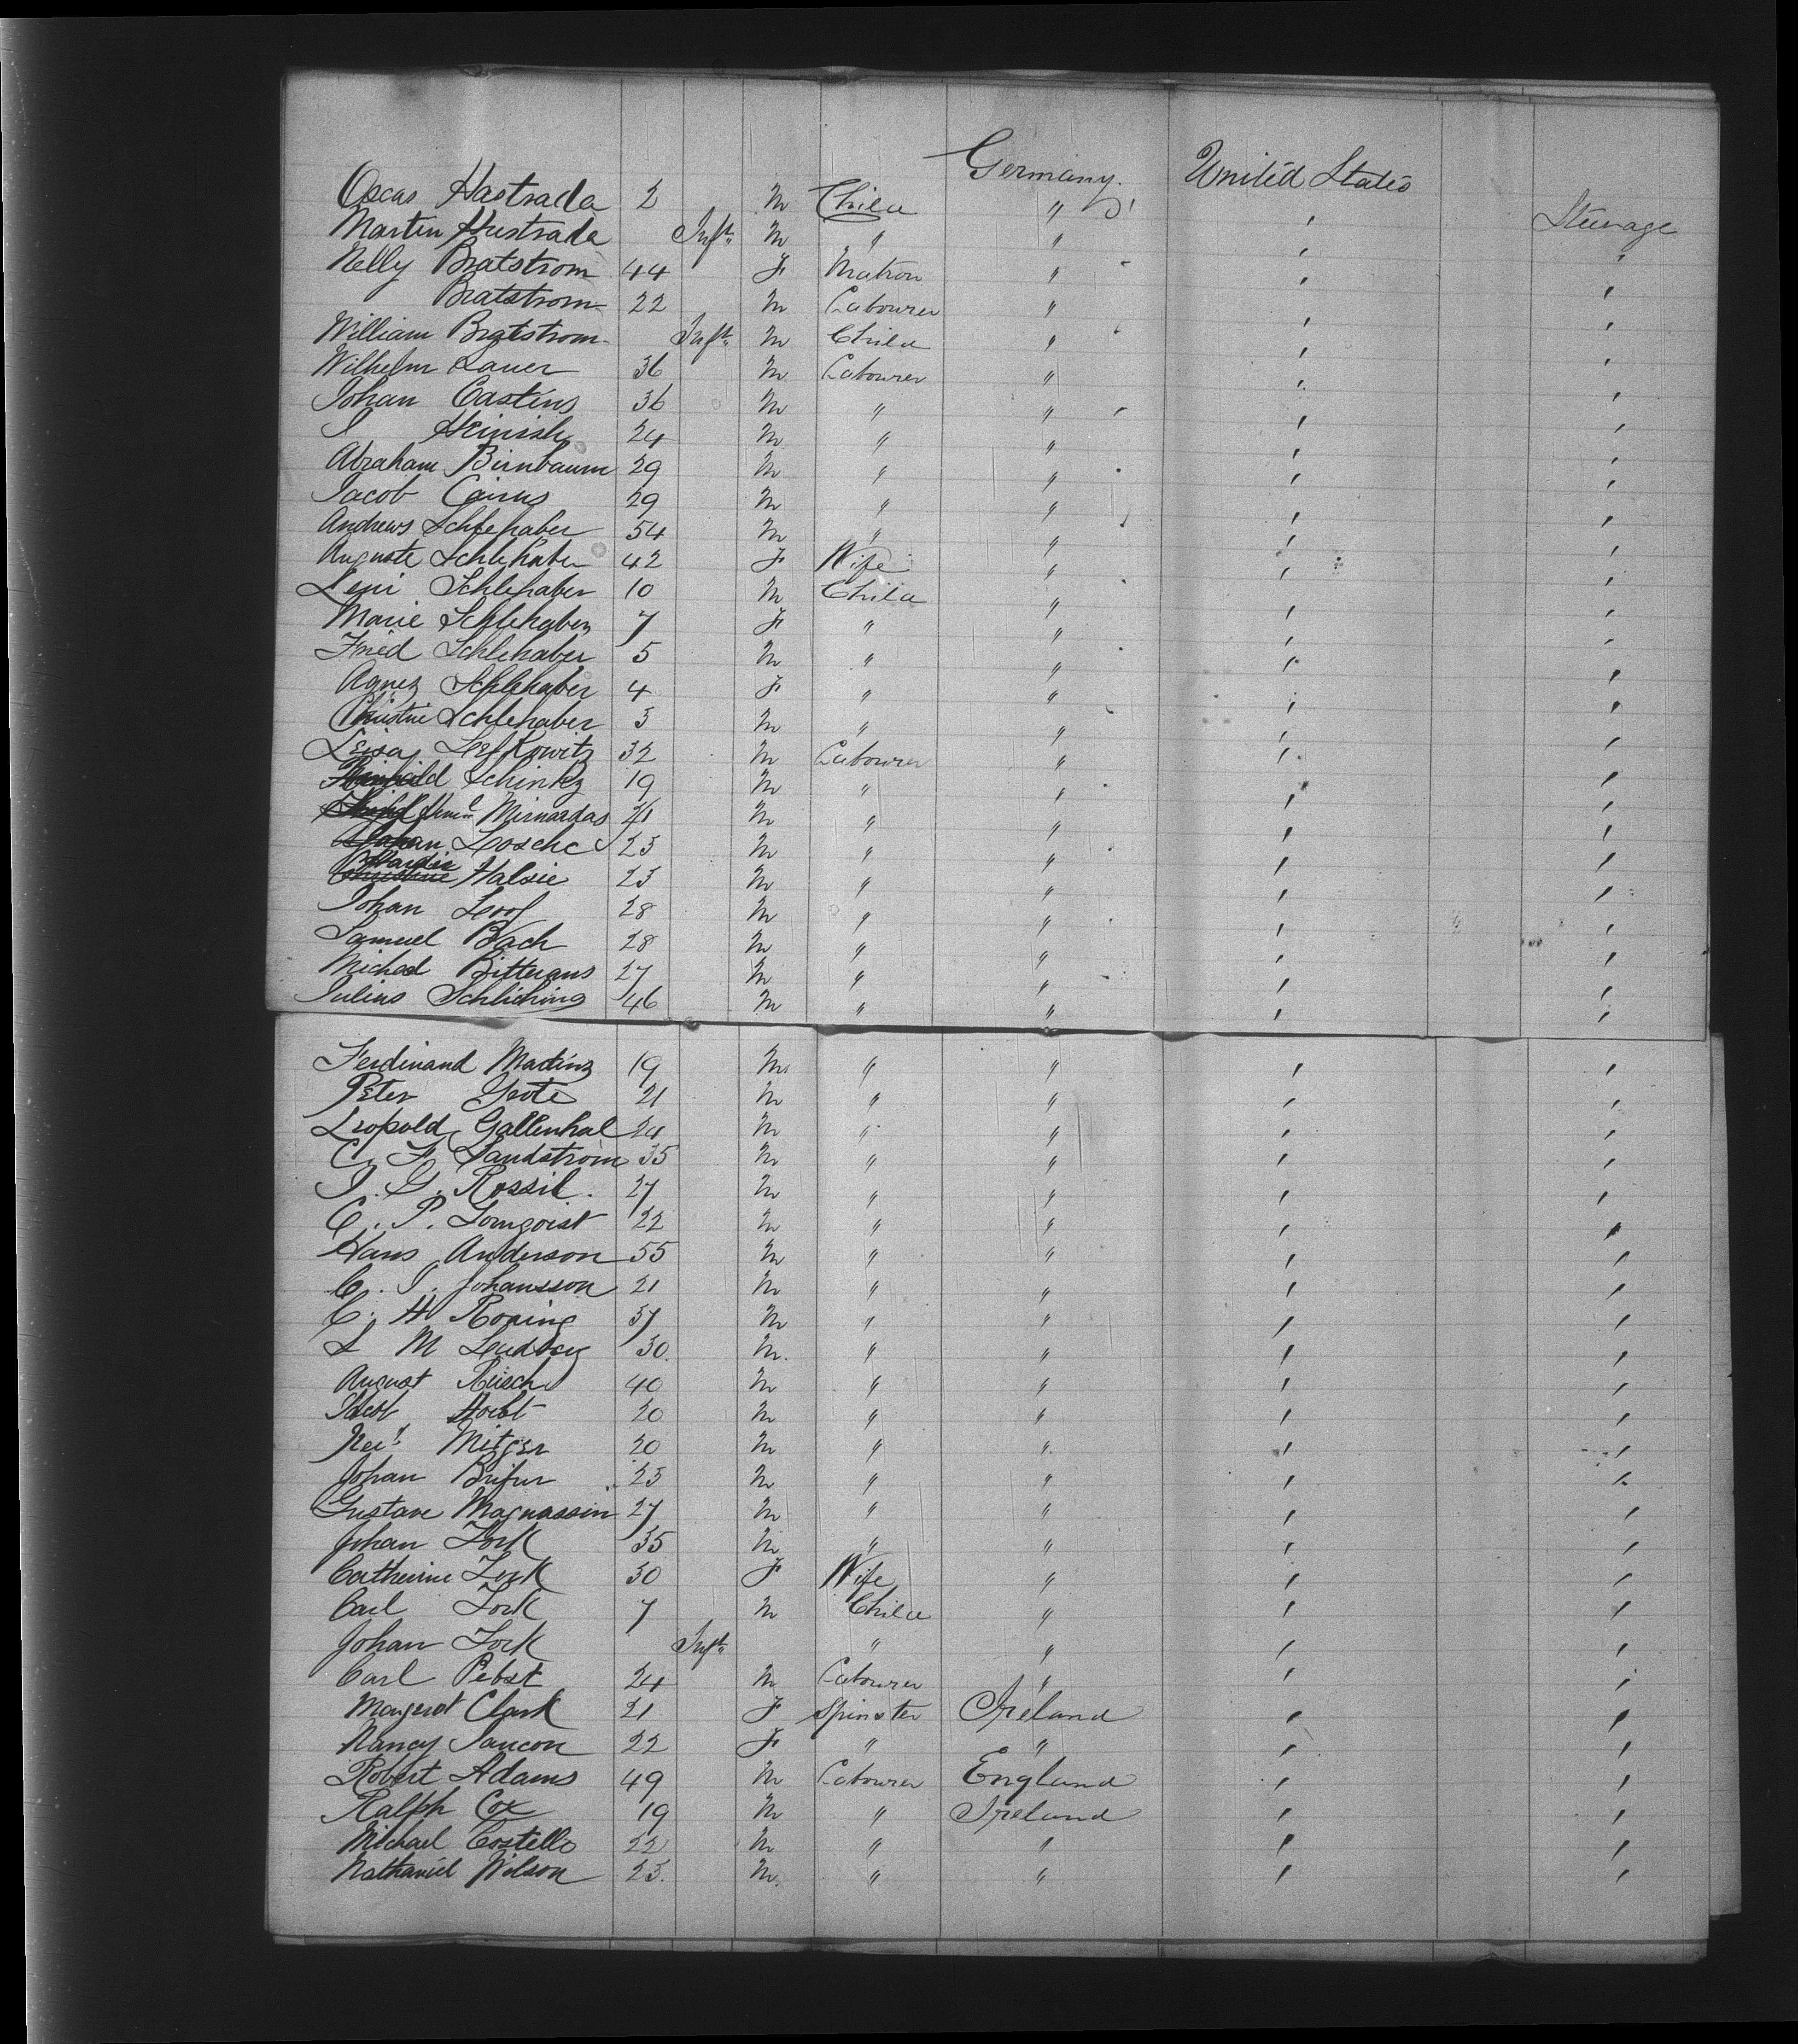 Germany. United States
Oscar Hastrada 2 M Child " " Steerage
Martin Hustrada Inft. M " " " "
Nelly Bratstrom 44 F Matron " " "
Bratstrom 22 M Labourer " " "
William Bratstrom Inft. M Child " " "
Wilhelm Lauer 36 M Labourer " " "
Johan Castens 36 M " " " "
J 24 M " " " "
Abraham Birnbaum 29 M " " " "
Jacob Cairus 29 M " " " "
Andrews Schlehaber 54 M " " " "
Auguste Schlehaber 42 F Wife " " "
Schlehaber 10 M Child " " "
Marie Schlehaber 7 F " " " "
Fried Schlehaber 5 M " " " "
Agnez Schlehaber 4 F " " " "
Christine Schlehaber 3 M " " " "
Leisa Lefkowitz 32 M Labourer " " "
Schinkz 19 M " " " "
Mirnardas M " " " "
Losche 23 M " " " "
Halsie 23 M " " " "
Johan Loof 28 M " " " "
Samuel Bach 28 M " " " "
Michael Bitterans 27 M " " " "
Julius Schliching 46 M " " " "
Ferdinand Martinz 19 M " " " "
Peter Grote 21 M " " " "
Leopold Gallenhal 24 M " " " "
C. F. Sandstrom 35 M " " " "
J. G. Rossil. 27 M " " " "
C. P. Lomgoist 22 M " " " "
Hans Anderson 55 M " " " "
C. J. Johansson 21 M " " " "
C. H Roping 37 M " " " "
L M 30. M. " " " "
August Riisch 40 M " " " "
Jacob 20 M " " " "
Mitger 20 M " " " "
Johan 23 M " " " "
Gustave Magnassin 27 M " " " "
Johan Tork 35 M " " " "
Catherine Tork 30 F Wife " " "
Carl Tork 7 M Child " " "
Johan Tork Inft. " " " "
Carl Pebst 24 M Labourer " " "
Margerot Clark 21 F Spinster Ireland " "
Nancy Saucon 22 F " " " "
Robert Adams 49 M Labourer England " "
Ralph Cox 19 M " Ireland " "
Michael Costello 22 M " " " "
Nathaniel Wilson 23. M. " " " "